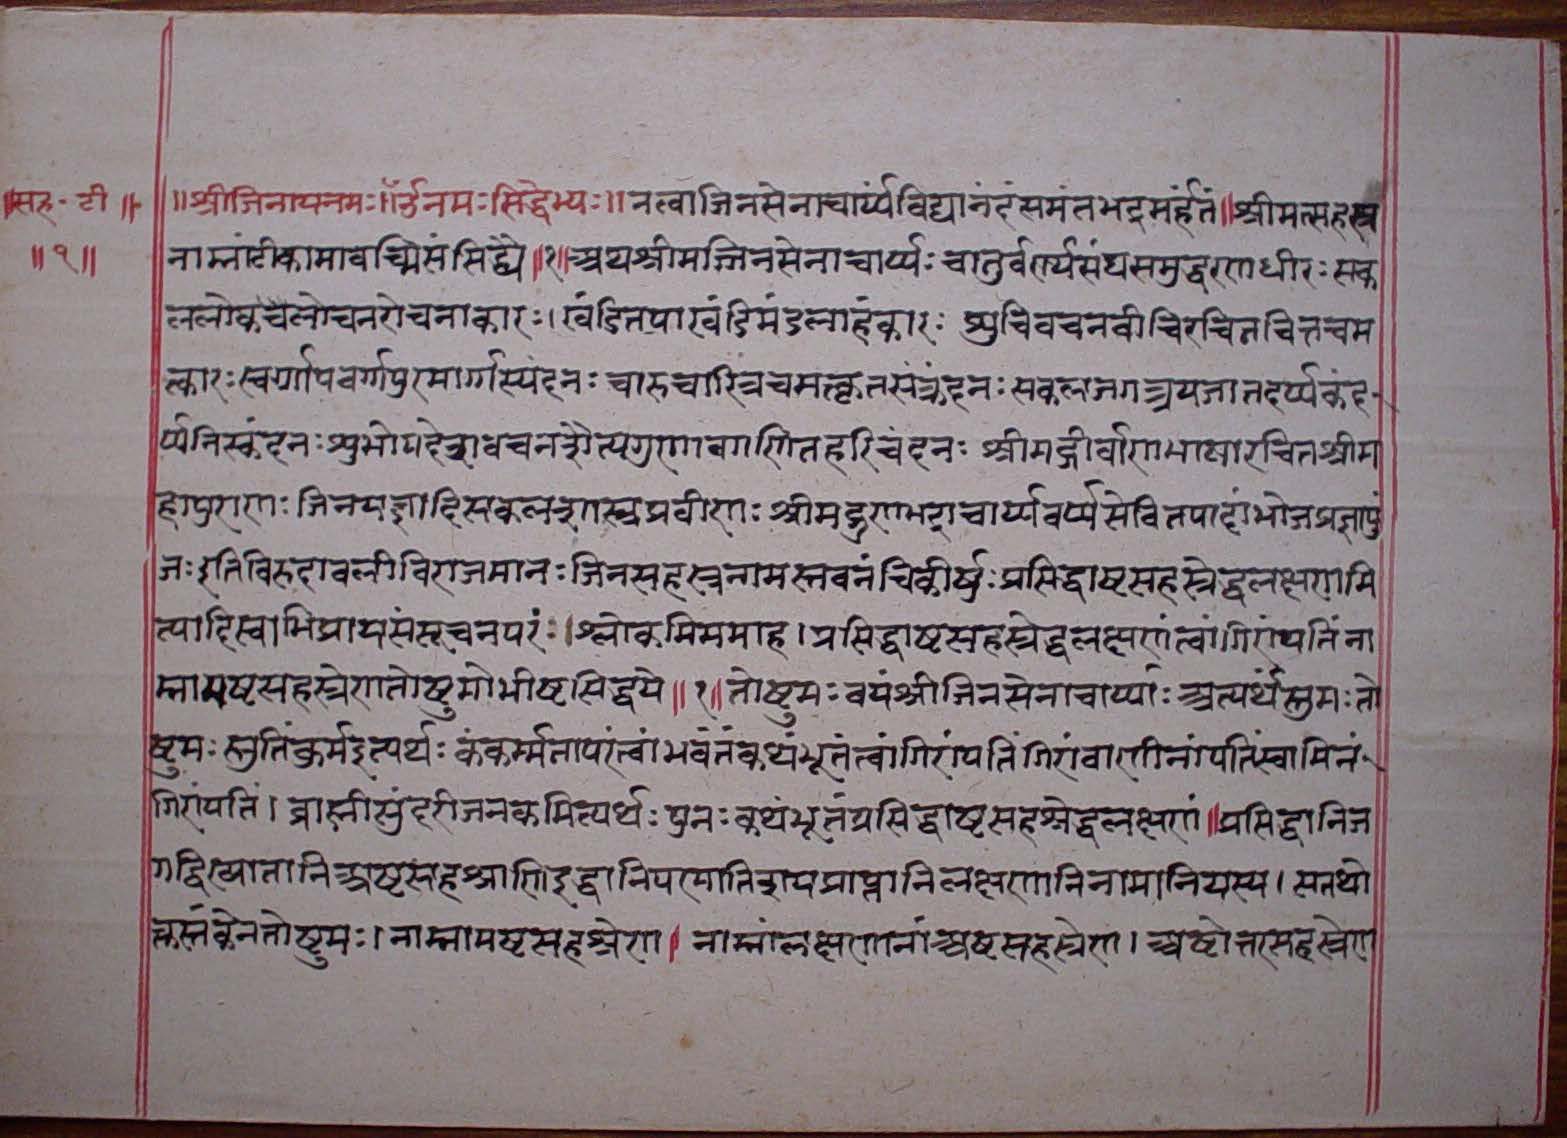 सह॰ टी॰ ॥
॥१॥
॥श्रीजिनायनमः॥ॐनमःसिद्धेभ्यः॥नत्वाजिनसेनाचार्य्यंविद्यानंदंसमंतभद्रमर्हंतं॥श्रीमत्सहस्त्र
नाम्नांटीकामावच्मिसंसिद्ध्यै॥१॥अथश्रीमज्जिनसेनाचार्य्यः चातुर्वर्ण्यसंघसमुद्धरणधीरः सक
ललोकचलोचनरोचनाकारः।खंडितपाखंडिमंडलाहंकारः शुचिवचनवीचिरचितचित्तचम
त्कारः स्वर्ग्गापवर्ग्गपुरमार्ग्गस्यंदनः चारुचारित्रचमत्कृतसंक्रंदनः सकलजगत्त्रयजातदर्प्पकंद
र्प्पनिस्कंदनः शुभोपदेशवचनशैत्यगुणावगणितहरिचंदनः श्रीमद्गीर्वाणभाषारचितश्रीम
हापुराणः जिनयज्ञादिसकलशास्त्रप्रवीणः श्रीमद्गुणभद्राचार्य्यवर्य्यसेवितपादांभोजप्रज्ञापुं
जः इतिविरुदावलीविराजमानः जिनसहस्त्रनामस्तवनंचिकीर्षुः प्रसिद्धाष्टसहस्त्रेद्धलक्षणमि
त्यादिस्वाभिप्रायसंसूचनपरंः।श्लोकमिममाह। प्रसिद्धाष्टसहस्त्रेद्धलक्षणंत्वांगिरांपतिं ना
म्नामष्टसहस्त्रेणतोष्टुमोभीष्टसिद्धये॥१॥तोष्टुमः वयंश्रीजिनसेनाचार्य्याः अत्यर्थंस्तुमः तो
ष्टुमः स्तुतिंकुर्मइत्यर्थः कंकर्म्मतापरंत्वांभवंतंकथंभूतंत्वांगिरांपतिंगिरांवाणीनांपतिंस्वामिनं
गिरांपतिं। ब्राह्मीसुंदरीजनकमित्यर्थः पुनः कथंभूतंप्रसिद्धाष्टसहश्रेद्धलक्षणं॥प्रसिद्धानिज
गद्विख्यातानिअष्टसहश्राणिइद्धानिपरमातिशयप्राप्तानिलक्षणानिनामानियस्य। सतथो
क्तस्तंकेनतोष्टुमः।नाम्नामष्टसहश्रेण। नाम्नांलक्षणानांअष्टसहस्त्रेण। अष्टोत्तरसहस्त्रेण